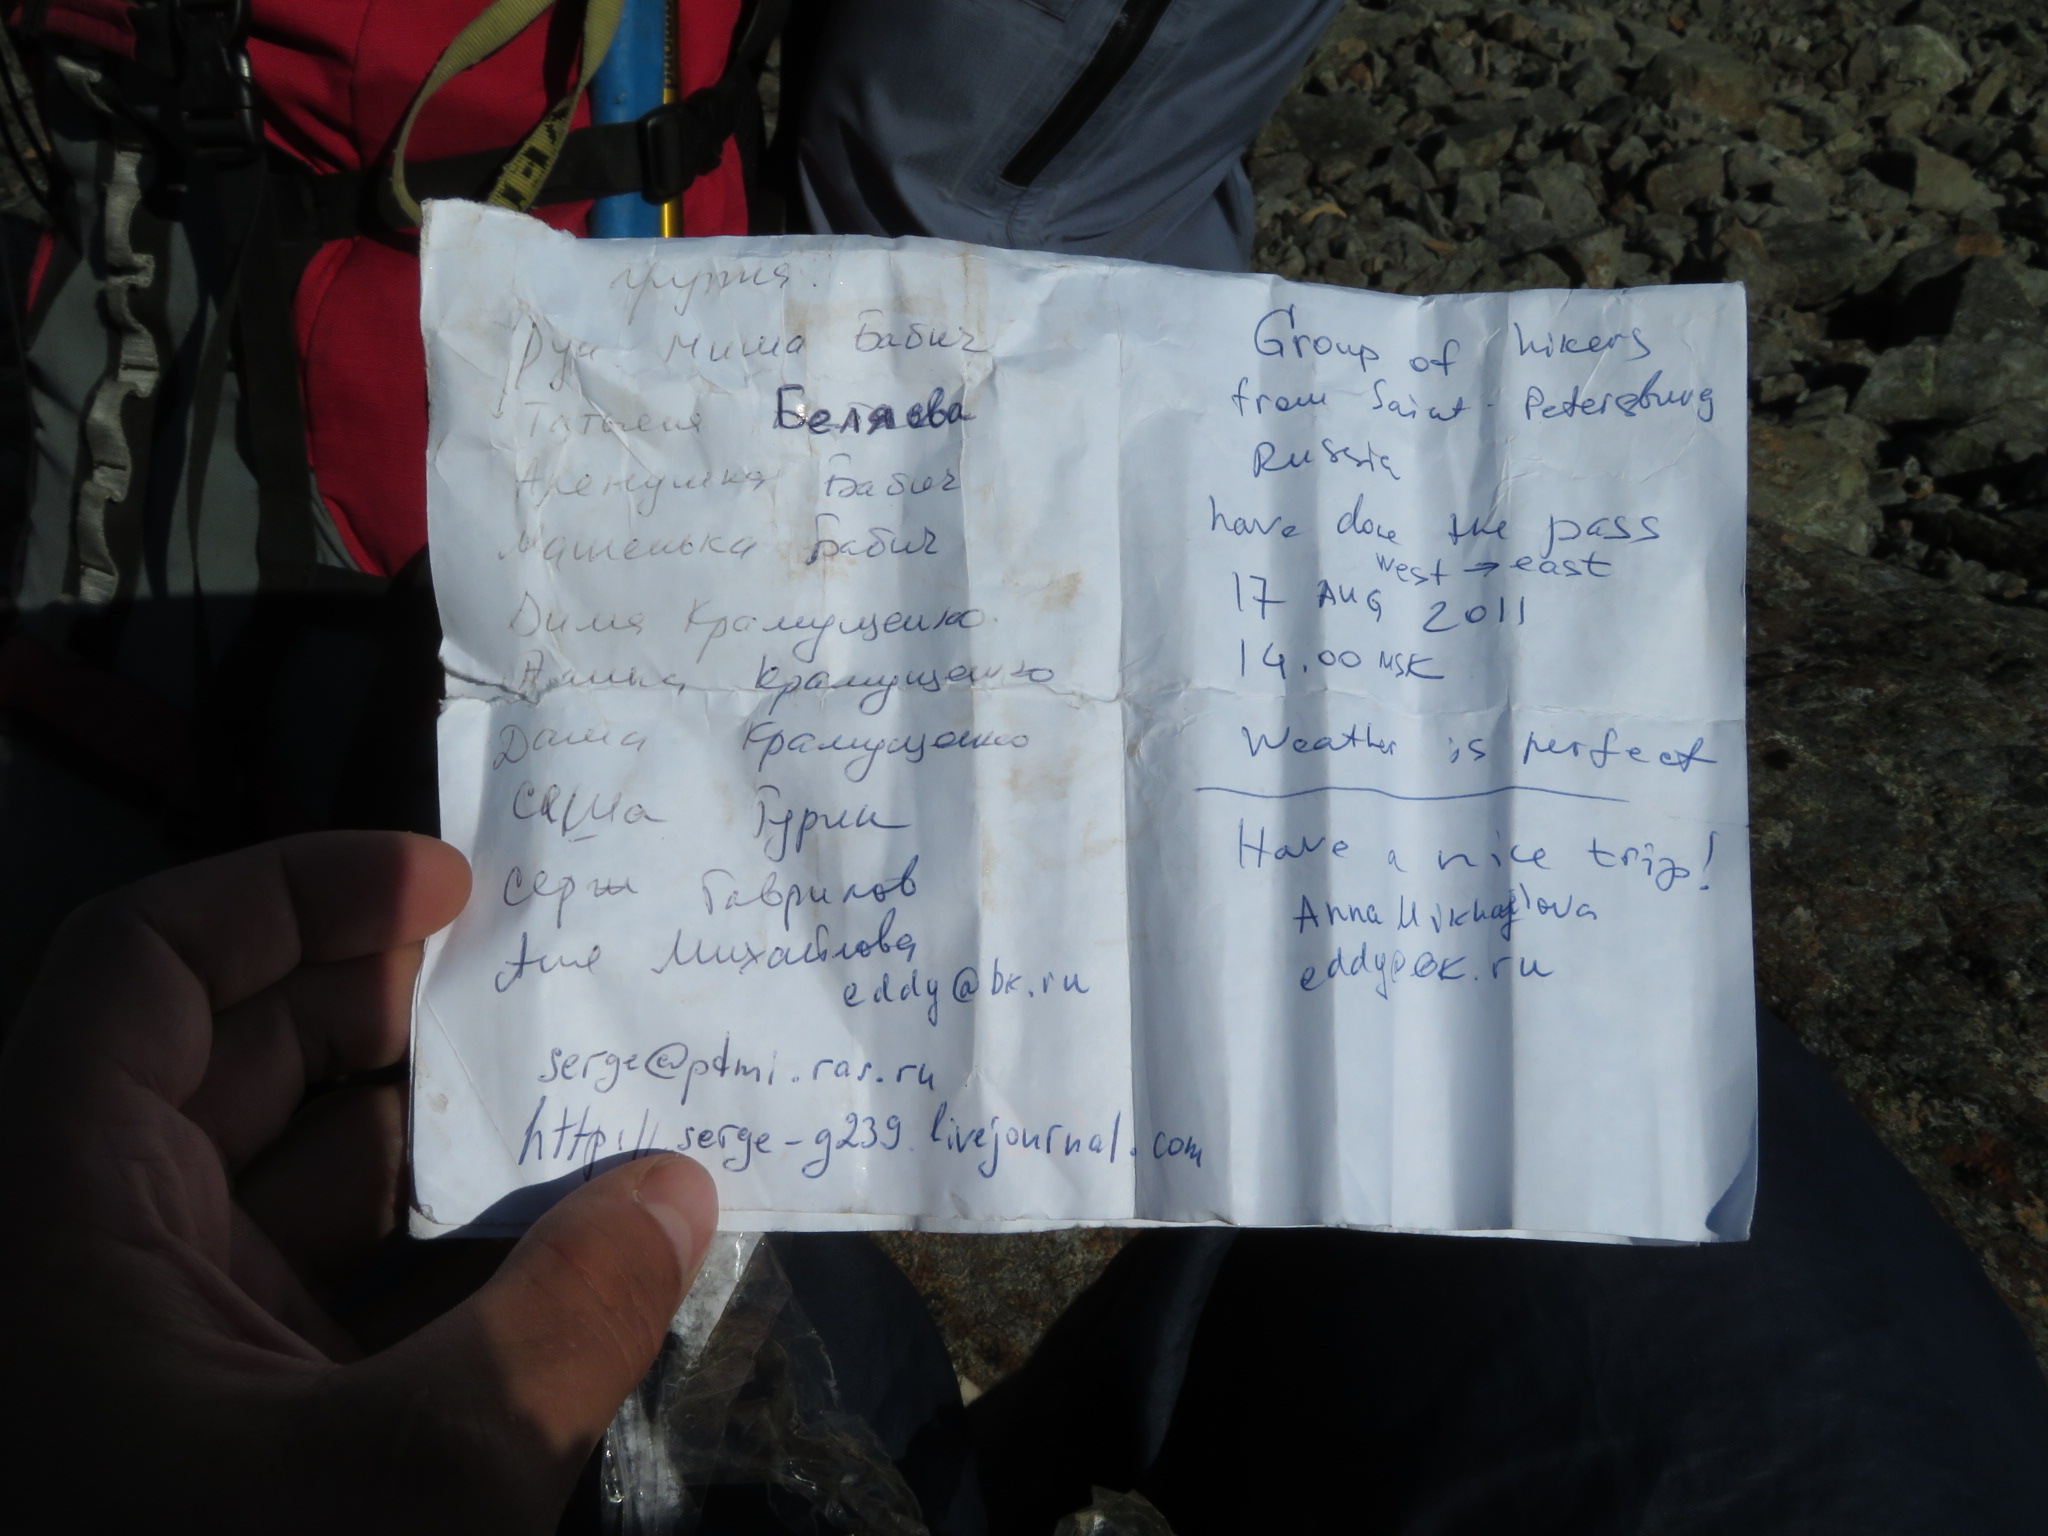 группа:
Рук Миша Бабич
Татьяна Беляева
Аленушка Бабич
Машенька Бабич
Дима Крамущенко
Крамущенко
Даша Крамущенко
Саша Гурин
Серж Гаврилов
Аня Михайлова
eddy@bk.ru
serge@pdmi.ras.ru
http://serge-g239.livejournal.com
Group of hikers
from Saint-Petersburg
Russia
have done the pass
west → east
17 AUG 2011
14.00 MSK
Weather is perfect
Have a nice trip!
Anna Mikhajlova
eddy@bk.ru